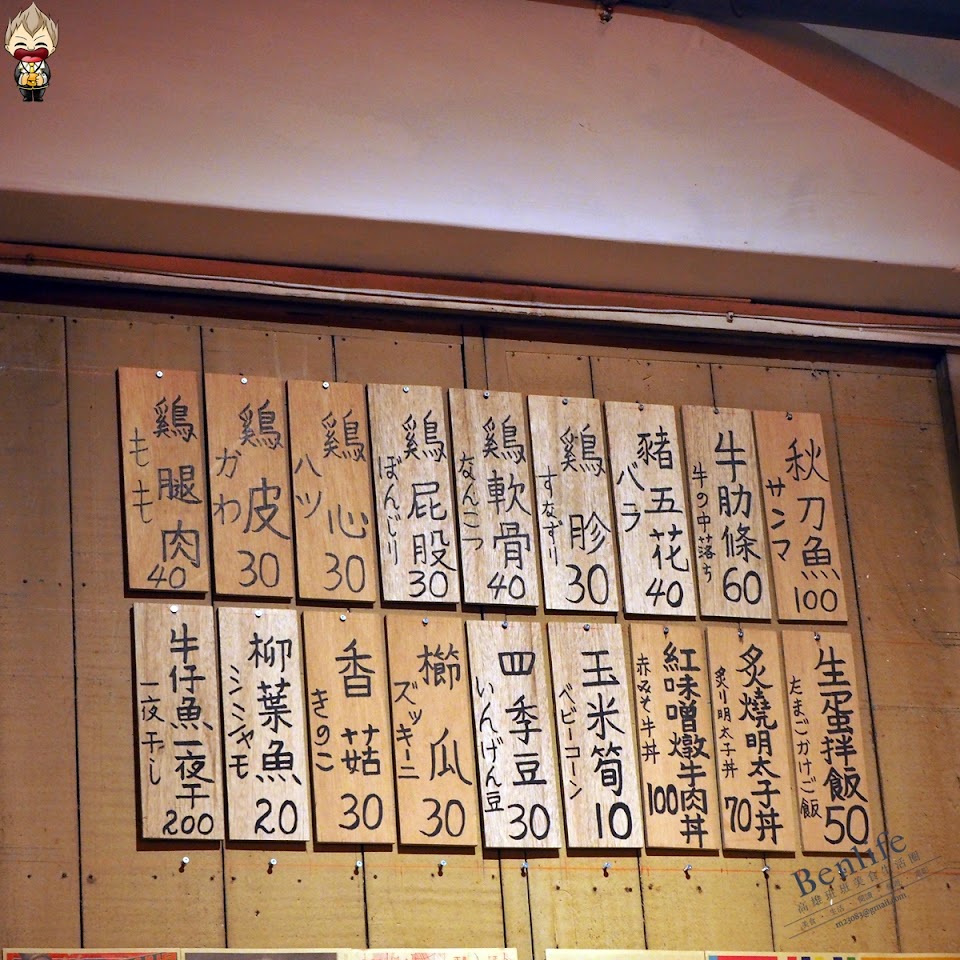 秋刀魚
サンマ
100
牛肋條
牛の中落ち
60
豬五花
バラ
40
鷄胗
すなずり
30
鷄軟骨
なんこつ
40
鷄屁股
ぼんじり
30
鷄心
ハツ
30
鷄皮
かわ
30
鷄腿肉
もも
40
生蛋拌飯
たまごかけご飯
50
炙燒明太子丼
炙り明太子丼
70
紅味噌燉牛肉丼
赤みそ牛丼
100
玉米筍
ベビーコーン
10
四季豆
いんげん豆
30
櫛瓜
ズッキーニ
30
香菇
きのこ
30
柳葉魚
シシャモ
20
牛仔魚一夜干
一夜干し
200
Benlife
高雄班班美食生活圈
m23083@gmail.com